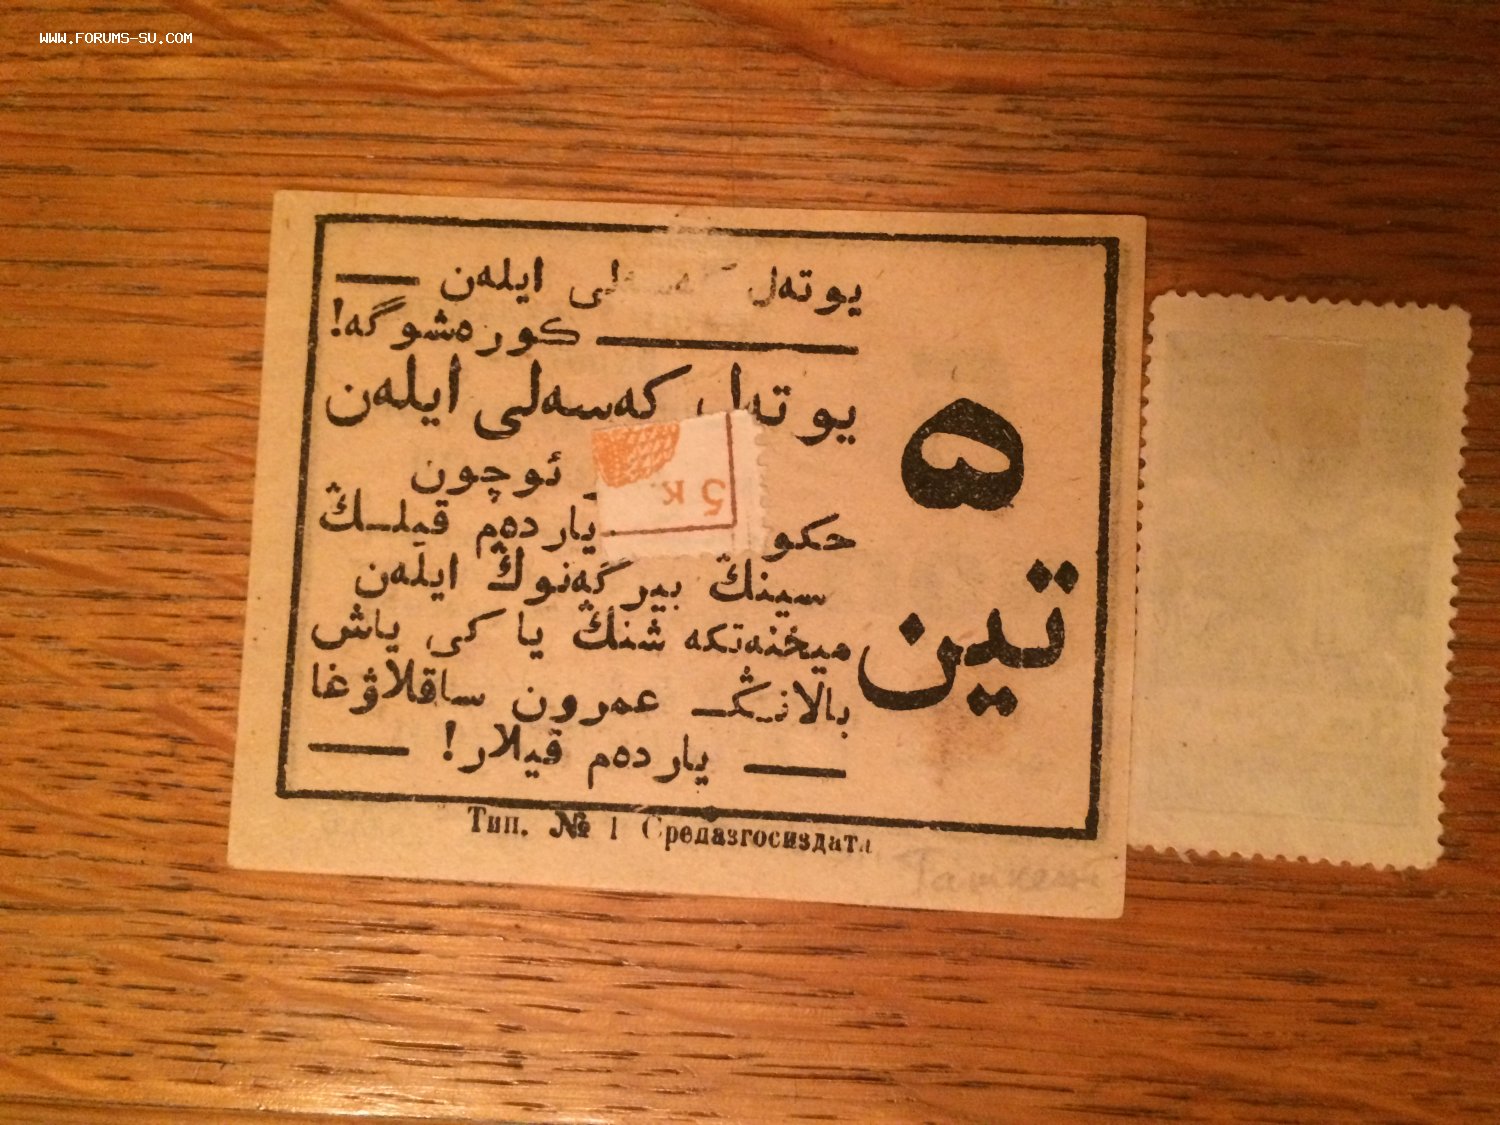 WWW.FORUMS-SU.COM
يوتەل ایلەن
كورەشوگە!
يوتەل كەسەلی ایلەن
ئوچون
حكو ياردەم قیلـنڭ
سینڭ بیر گەنوڭ ایلەن
میخنەتكە شنڭ یا كی یاش
بالانـڭ عمرون ساقلاۋغا
ياردەم قیلار!
۵
تین
5 к.
Тип. № 1 Средазгосиздата
Ташкент